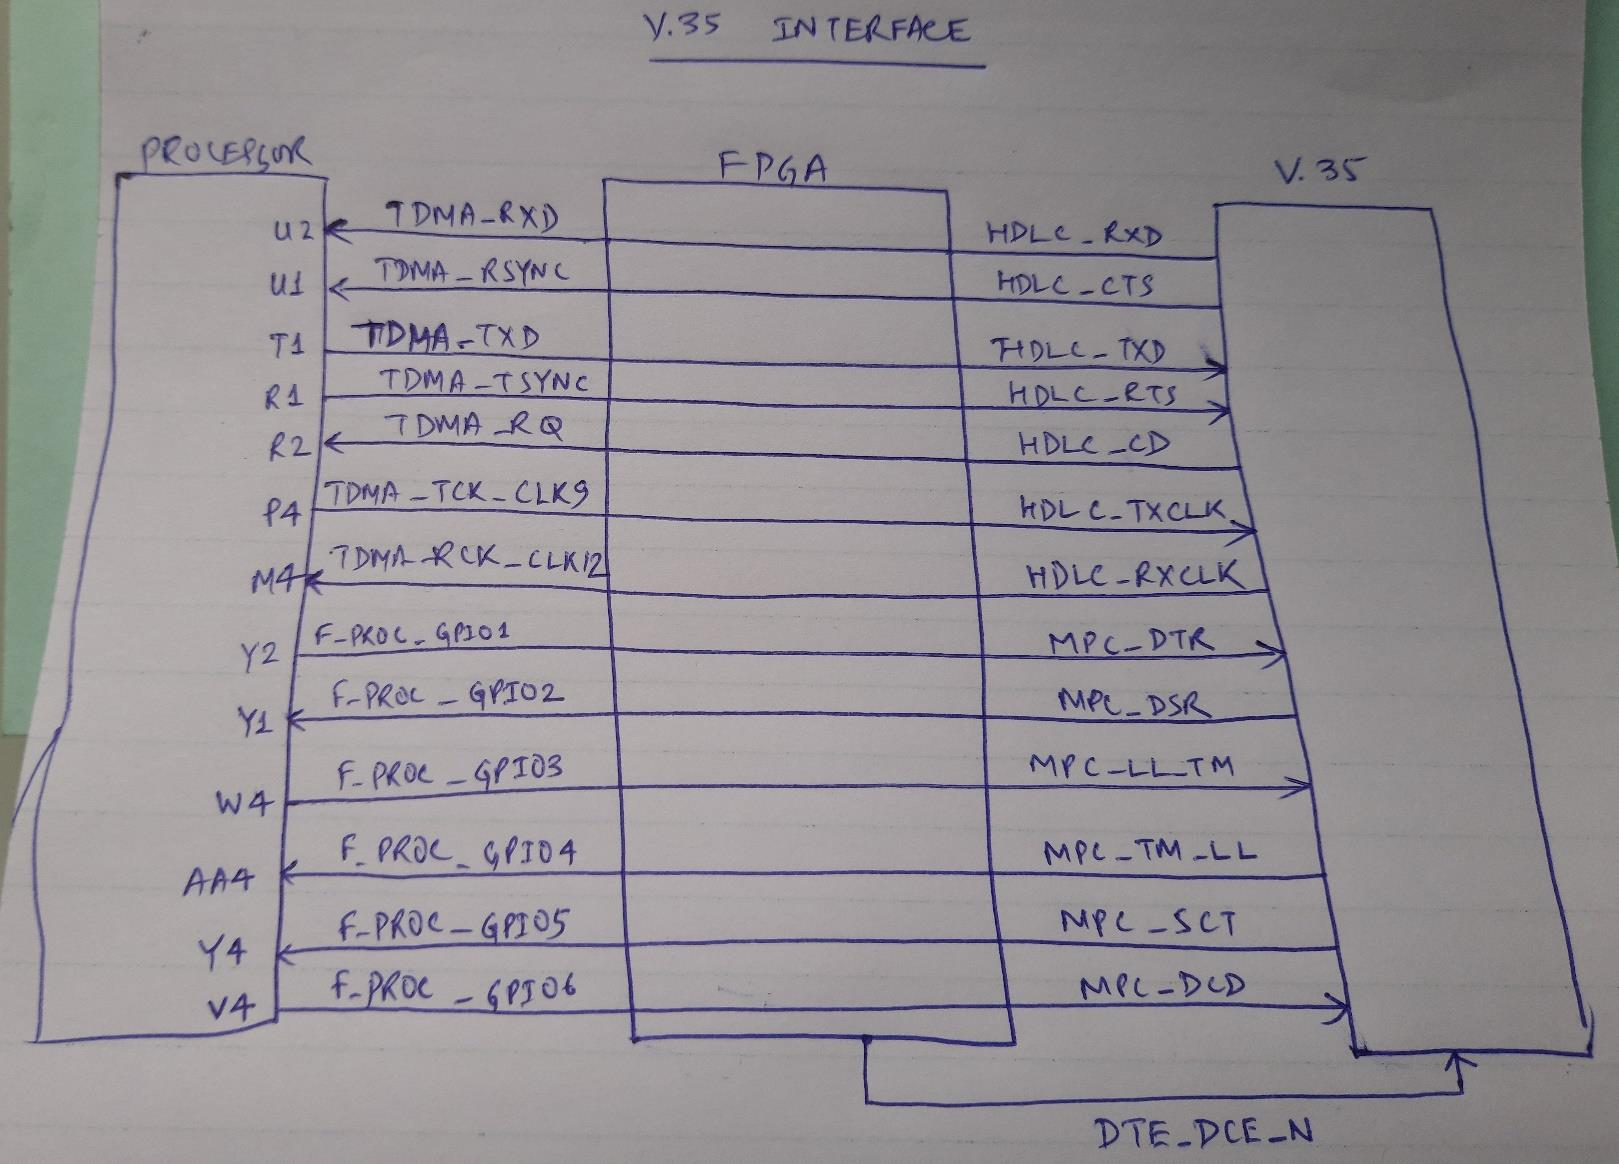 V.35 INTERFACE
PROCESSOR FPGA V.35
U2 TDMA_RXD HDLC_RXD
U1 TDMA_RSYNC HDLC_CTS
T1 TDMA_TXD HDLC_TXD
R1 TDMA_TSYNC HDLC_RTS
R2 TDMA_RQ HDLC_CD
P4 TDMA_TCK_CLK9 HDLC_TXCLK
M4 TDMA_RCK_CLK12 HDLC_RXCLK
Y2 F_PROC_GPIO1 MPC_DTR
Y1 F_PROC_GPIO2 MPC_DSR
W4 F_PROC_GPIO3 MPC_LL_TM
AA4 F_PROC_GPIO4 MPC_TM_LL
Y4 F_PROC_GPIO5 MPC_SCT
V4 F_PROC_GPIO6 MPC_DCD
DTE_DCE_N